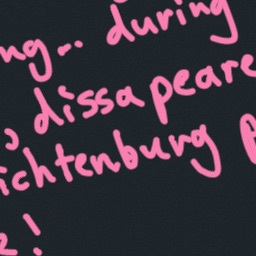 ng... during
, dissapeare
ichtenburg
e!